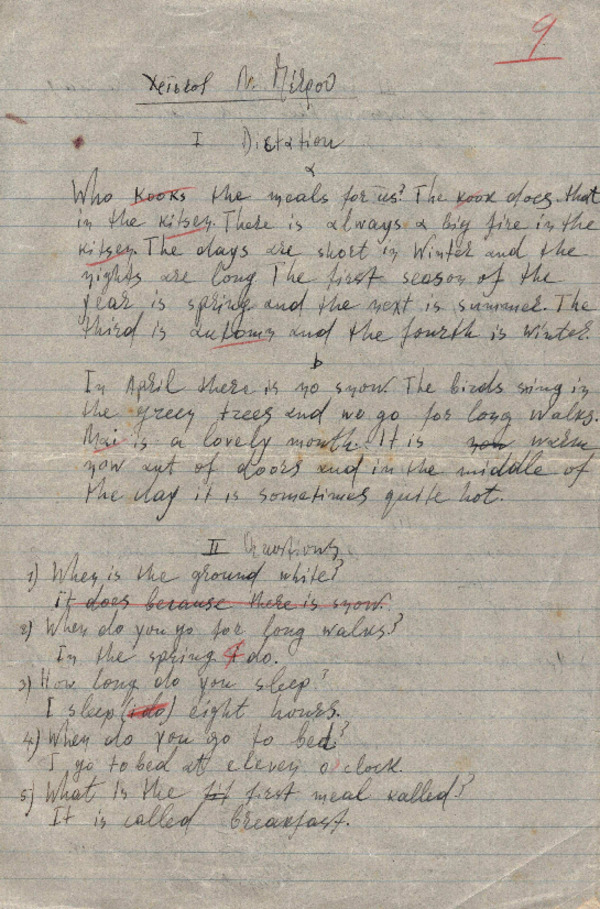 9
Χρίστος Ν. Πέτρου
I Dictation
α
Who kooks the meals for us? The kook does. that
in the kitsen. There is always a big fire in the
kitsen. The days are short in Winter and the
nights are long The first season of the
year is spring and the next is summer. The
third is automn and the fourth is winter.
b
In April there is no snow. The birds sing in
the green trees and we go for long walks.
Mai is a lovely month. It is now warm
now out of doors and in the middle of
the day it is sometimes quite hot.
II Questions
1) When is the ground white?
it does because there is snow.
2) When do you go for long walks?
In the spring I do.
3) How long do you sleep?
I sleep (i do) eight hours.
4) When do you go to bed?
I go to bed at eleven o'clock.
5) What is the fif first meal kalled?
It is called breakfast.